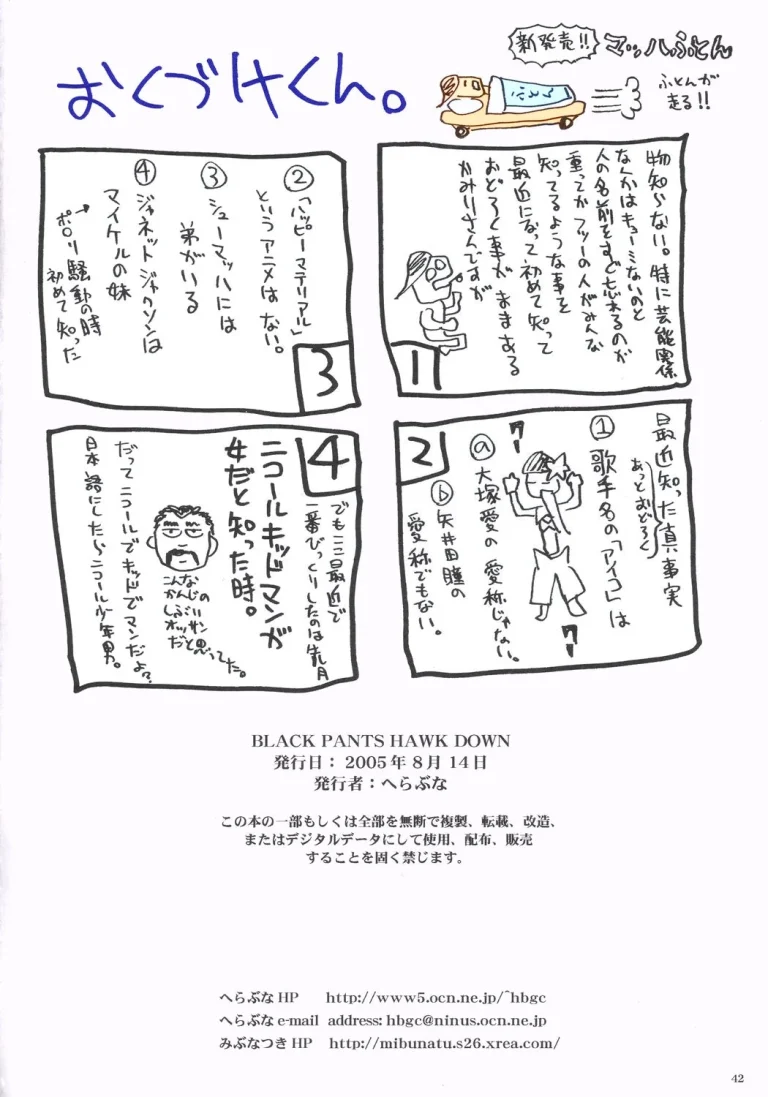 おくづけくん。
新発売!!
マッハふとん
ふとん
ふとんが
走る!!
1
物知らない。特に芸能関係
なんかはキョーミないのと
人の名前をすぐ忘れるのが
重ってかフツーの人がみんな
知ってるような事を
最近になって初めて知って
おどろく事が ままある
かみりさんですが
2
最近知った真事実
あっとおどろく
① 歌手名の「アイコ」は
ⓐ 大塚愛の 愛称じゃない。
ⓑ 矢井田瞳の
愛称でもない。
クー
クー
3
② 「ハッピーマテリアル」
というアニメはない。
③ シューマッハには
弟がいる
④ ジャネット ジャクソンは
マイケルの妹
→ポロリ騒動の時
初めて知った
4
でもここ最近で
一番びっくりしたのは先月
ニコールキッドマンが
女だと知った時。
こんな
かんじの
しぶい
オッサン
だと思ってた。
だってニコールでキッドでマンだよ?
日本語にしたらニコール少年男。
BLACK PANTS HAWK DOWN
発行日：2005年8月14日
発行者：へらぶな
この本の一部もしくは全部を無断で複製、転載、改造、
またはデジタルデータにして使用、配布、販売
することを固く禁じます。
へらぶなHP http://www5.ocn.ne.jp/~hbgc
へらぶなe-mail address: hbgc@ninus.ocn.ne.jp
みぶなつきHP http://mibunatu.s26.xrea.com/
42